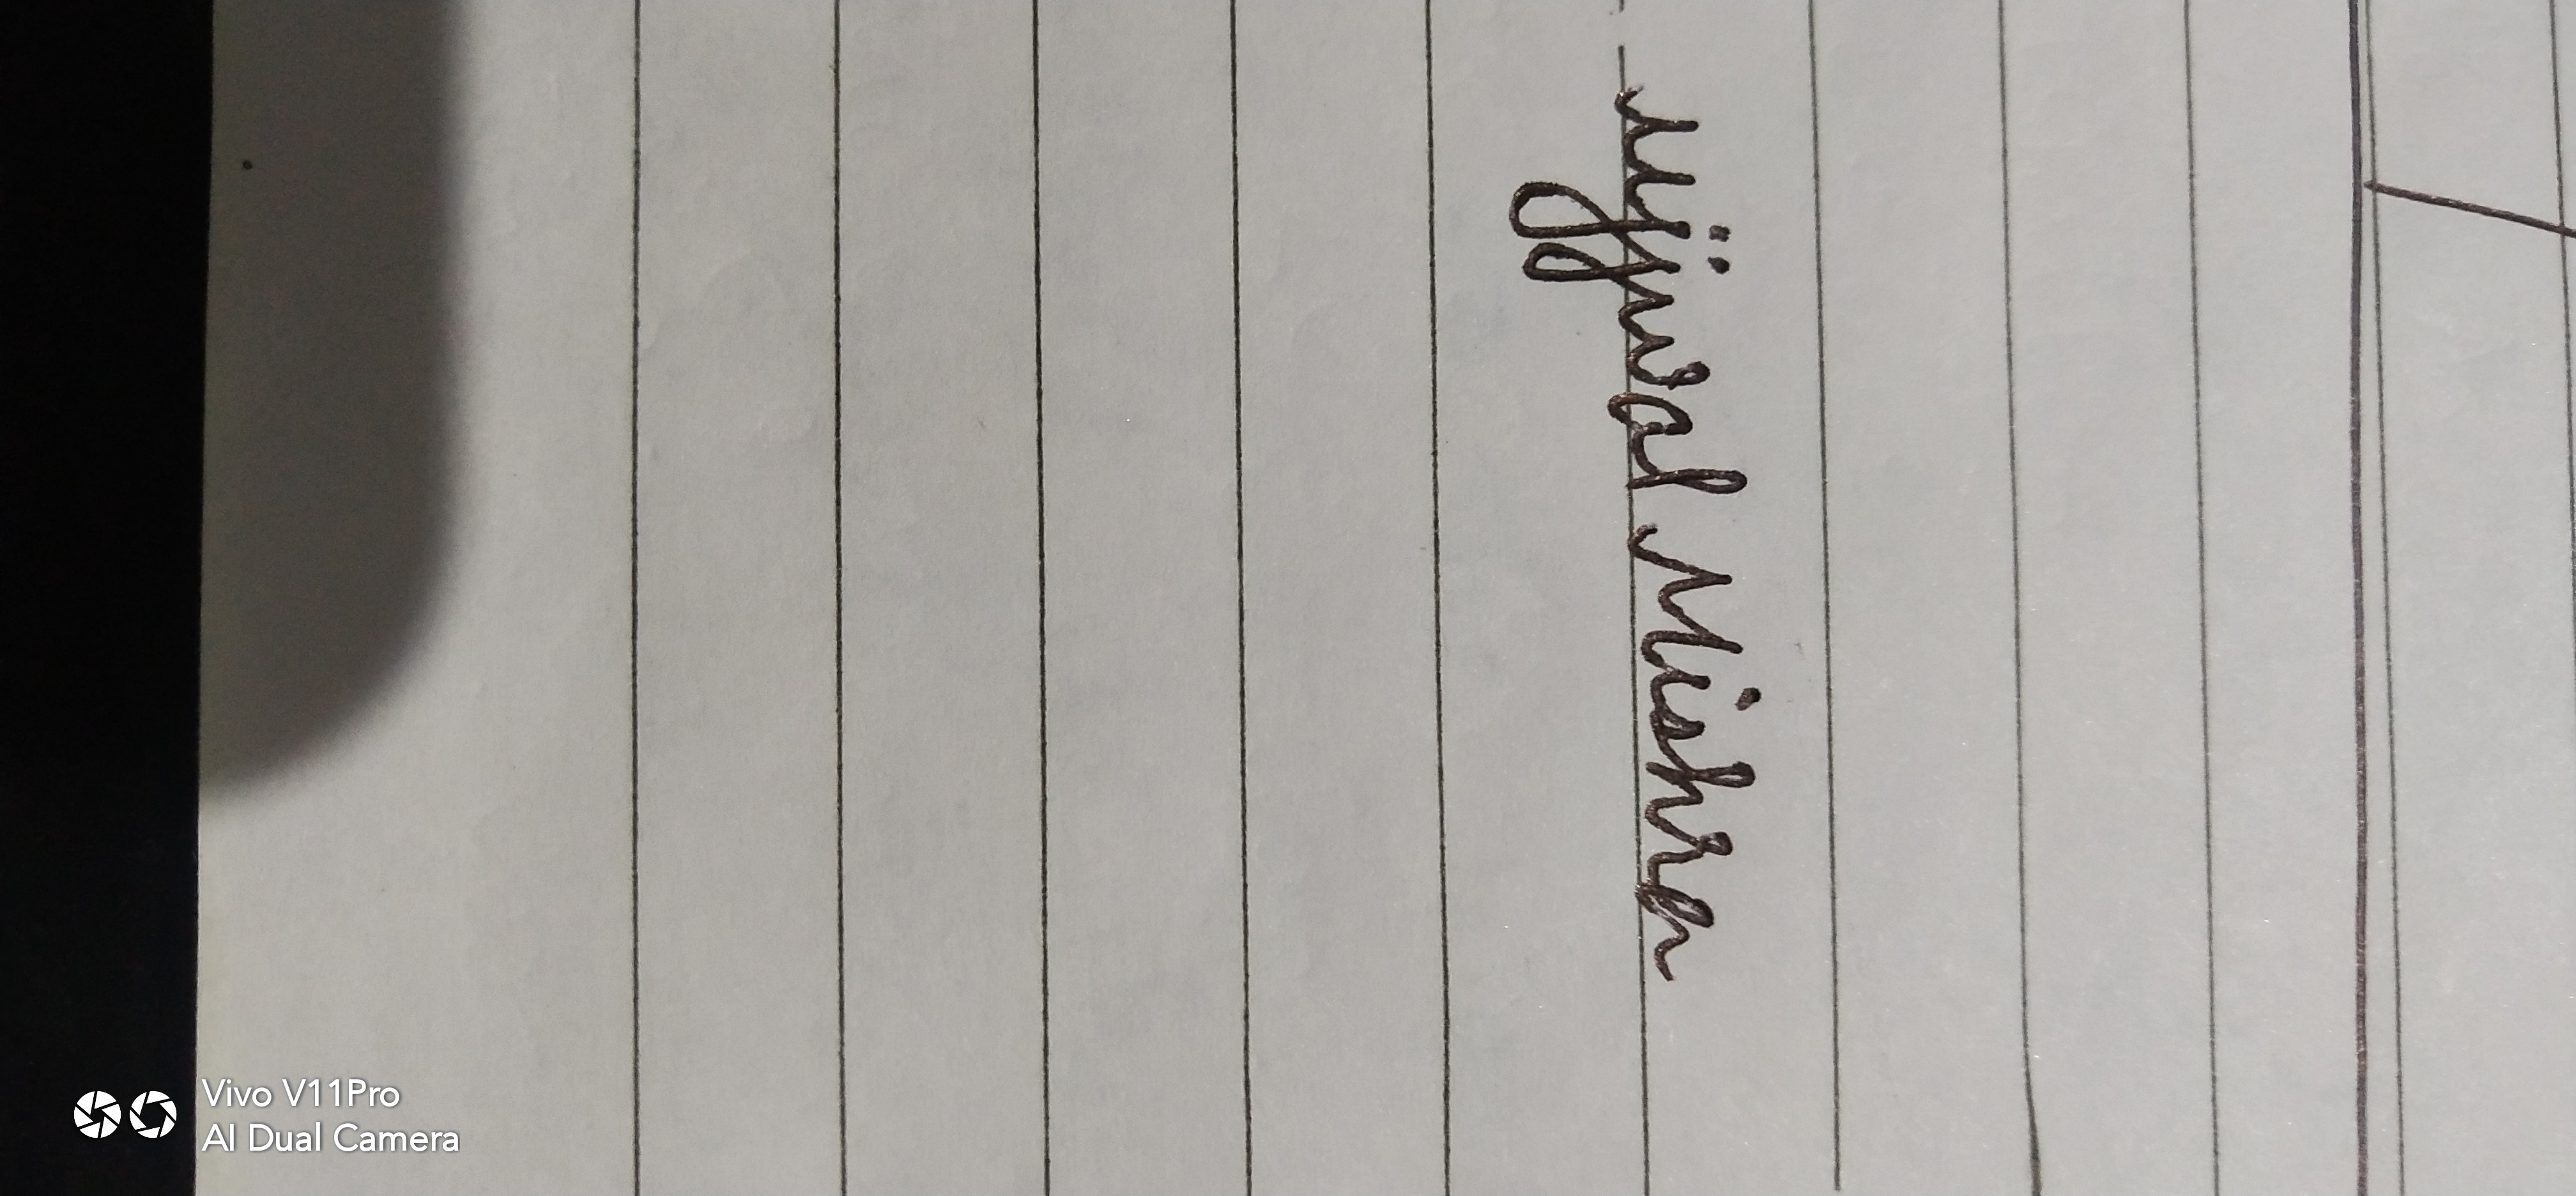 ujjwal Mishra
Vivo V11Pro
AI Dual Camera